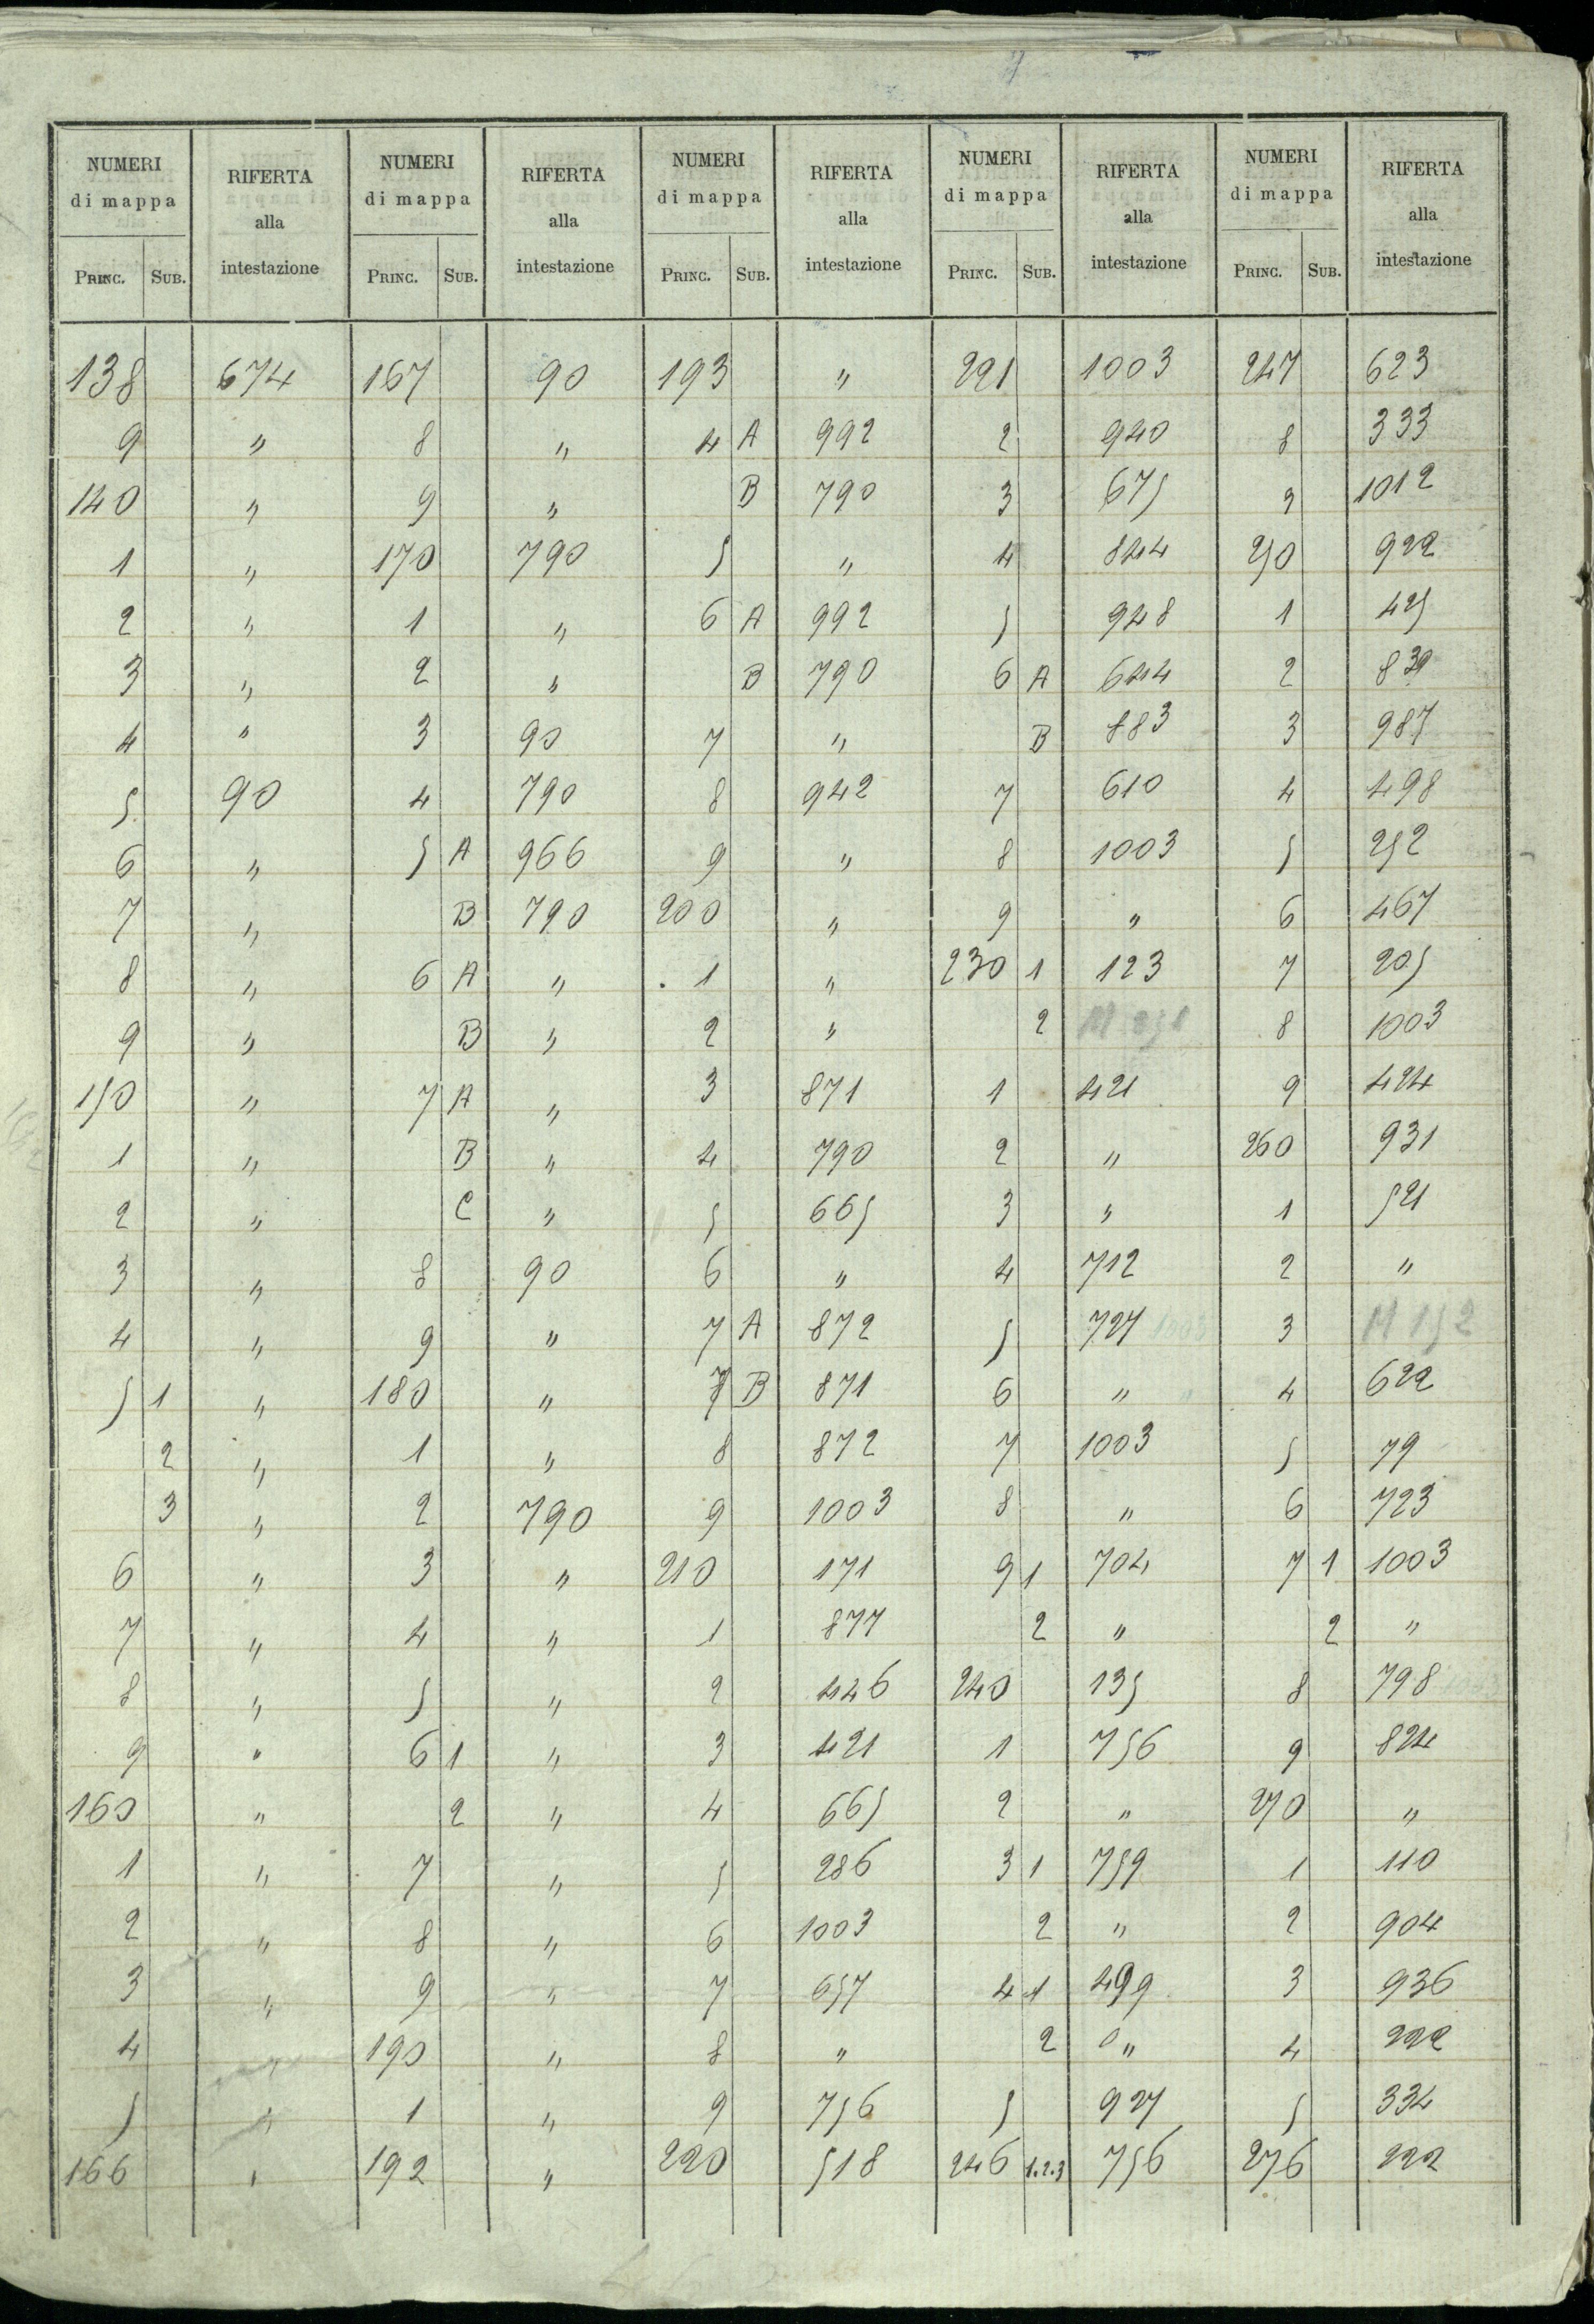 NUMERI di mappa | RIFERTA alla intestazione | NUMERI di mappa | RIFERTA alla intestazione | NUMERI di mappa | RIFERTA alla intestazione | NUMERI di mappa | RIFERTA alla intestazione | NUMERI di mappa | RIFERTA alla intestazione
PRINC. | SUB. | | PRINC. | SUB. | | PRINC. | SUB. | | PRINC. | SUB. | | PRINC. | SUB. |
138 | | 674 | 167 | | 90 | 193 | | " | 221 | | 1003 | 247 | | 623
9 | | " | 8 | | " | 4 | A | 992 | 2 | | 940 | 8 | | 333
140 | | " | 9 | | " | | B | 790 | 3 | | 675 | 9 | | 1012
1 | | " | 170 | | 790 | 5 | | " | 4 | | 844 | 250 | | 922
2 | | " | 1 | | " | 6 | A | 992 | 5 | | 948 | 1 | | 425
3 | | " | 2 | | " | | B | 790 | 6 | A | 644 | 2 | | 839
4 | | " | 3 | | 90 | 7 | | " | | B | 883 | 3 | | 987
5 | | 90 | 4 | | 790 | 8 | | 942 | 7 | | 610 | 4 | | 498
6 | | " | 5 | A | 966 | 9 | | " | 8 | | 1003 | 5 | | 252
7 | | " | | B | 790 | 200 | | " | 9 | | " | 6 | | 467
8 | | " | 6 | A | " | 1 | | " | 230 | 1 | 123 | 7 | | 205
9 | | " | | B | " | 2 | | " | | 2 | M 251 | 8 | | 1003
150 | | " | 7 | A | " | 3 | | 871 | 1 | | 421 | 9 | | 424
1 | | " | | B | " | 4 | | 790 | 2 | | " | 260 | | 931
2 | | " | | C | " | 5 | | 665 | 3 | | " | 1 | | 521
3 | | " | 8 | | 90 | 6 | | " | 4 | | 712 | 2 | | "
4 | | " | 9 | | " | 7 | A | 872 | 5 | | 727 1003 | 3 | | M 152
5 | 1 | " | 180 | | " | 7 | B | 871 | 6 | | " | 4 | | 622
| 2 | " | 1 | | " | 8 | | 872 | 7 | | 1003 | 5 | | 79
| 3 | " | 2 | | 790 | 9 | | 1003 | 8 | | " | 6 | | 723
6 | | " | 3 | | " | 210 | | 171 | 9 | 1 | 704 | 7 | 1 | 1003
7 | | " | 4 | | " | 1 | | 877 | | 2 | " | | 2 | "
8 | | " | 5 | | " | 2 | | 446 | 240 | | 135 | 8 | | 798
9 | | " | 6 | 1 | " | 3 | | 421 | 1 | | 756 | 9 | | 824
160 | | " | | 2 | " | 4 | | 665 | 2 | | " | 270 | | "
1 | | " | 7 | | " | 5 | | 286 | 3 | 1 | 759 | 1 | | 110
2 | | " | 8 | | " | 6 | | 1003 | | 2 | " | 2 | | 904
3 | | " | 9 | | " | 7 | | 657 | 4 | 1 | 499 | 3 | | 936
4 | | " | 190 | | " | 8 | | " | | 2 | " | 4 | | 222
5 | | " | 1 | | " | 9 | | 756 | 5 | | 927 | 5 | | 334
166 | | " | 192 | | " | 220 | | 518 | 246 | 1.2.3 | 756 | 276 | | 222